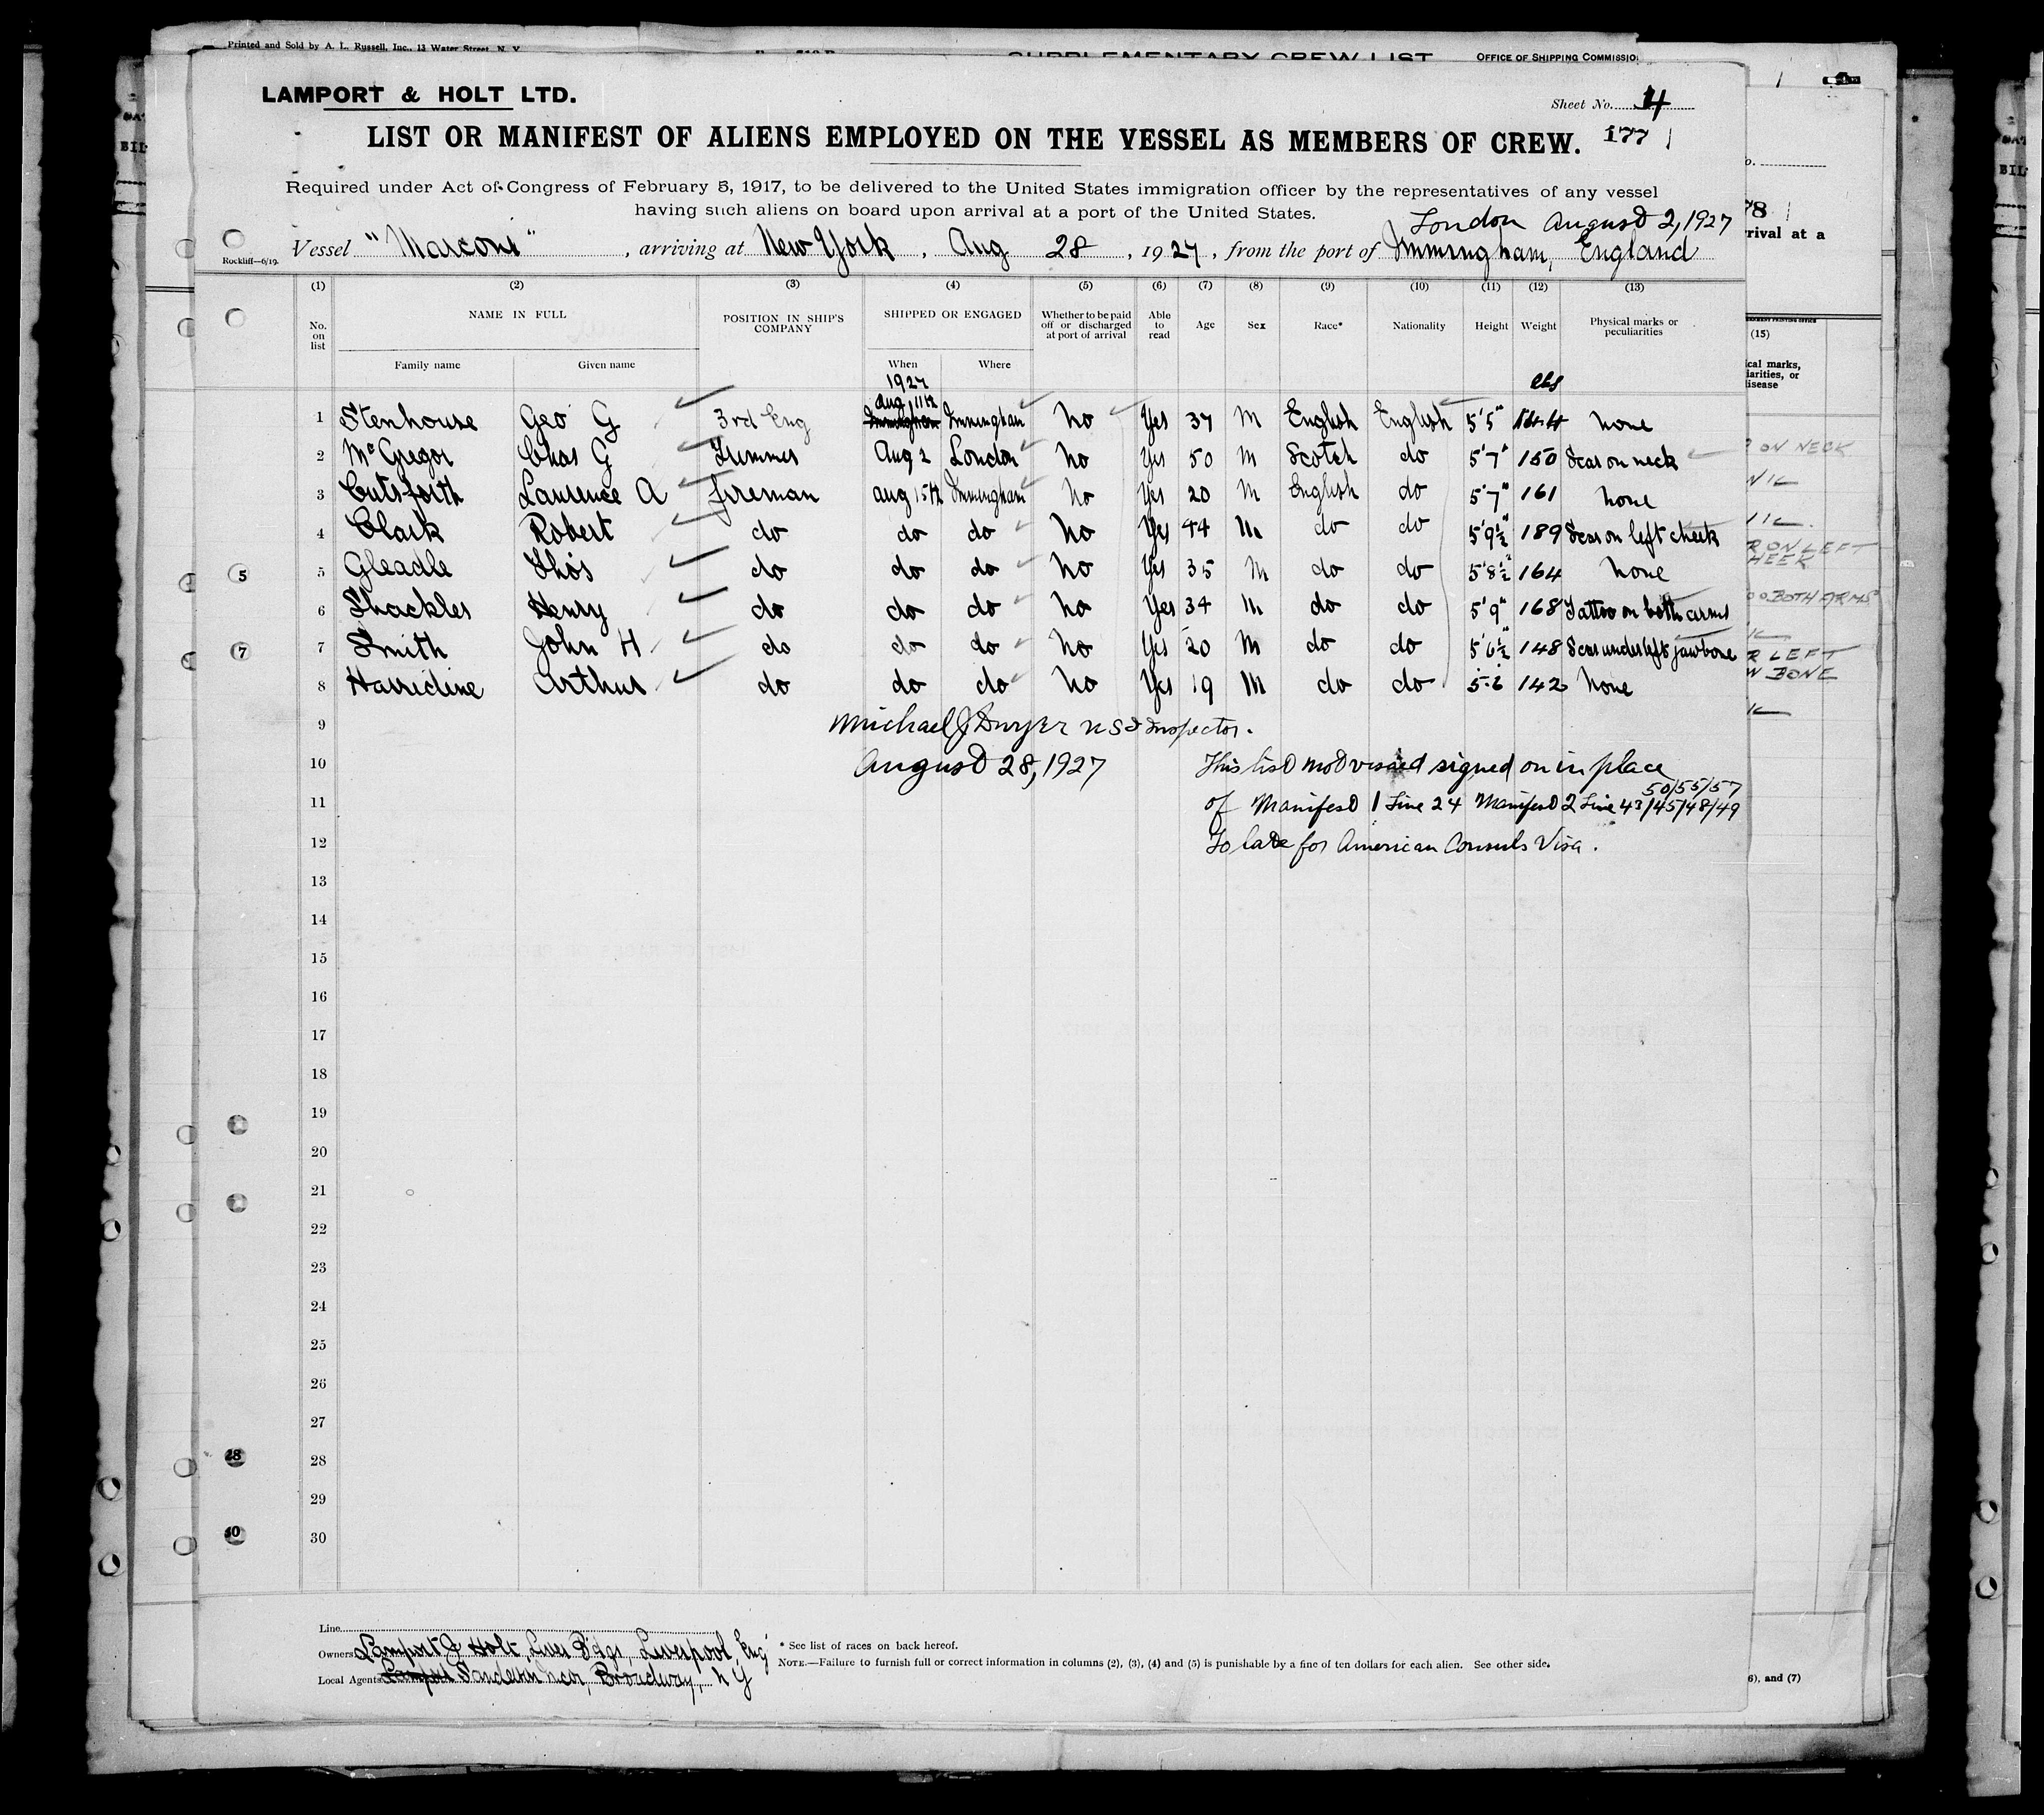 Printed and Sold by A. L. Russell, Inc., 13 Water Street, N. Y.
SUPPLEMENTARY CREW LIST
OFFICE OF SHIPPING COMMISSIO
LAMPORT & HOLT LTD.
Sheet No. 4
LIST OR MANIFEST OF ALIENS EMPLOYED ON THE VESSEL AS MEMBERS OF CREW. 177
Required under Act of Congress of February 5, 1917, to be delivered to the United States immigration officer by the representatives of any vessel
having such aliens on board upon arrival at a port of the United States.
London August 2, 1927
Vessel "Marconi", arriving at New York, Aug 28, 1927, from the port of Immingham, England
Rockliff—6/19.
(1) (2) (3) (4) (5) (6) (7) (8) (9) (10) (11) (12) (13)
No. on list NAME IN FULL POSITION IN SHIP'S COMPANY SHIPPED OR ENGAGED Whether to be paid off or discharged at port of arrival Able to read Age Sex Race* Nationality Height Weight Physical marks or peculiarities
Family name Given name When Where
1927 lbs
1 Stenhouse Geo G 3rd Eng Aug 11th Immingham No Yes 37 M English English 5'5" 144 none
2 McGregor Chas G Trimmer Aug 2 London No Yes 50 M Scotch do 5'7" 150 Scar on neck
3 Cutsforth Laurence A fireman aug 15th Immingham No Yes 20 M English do 5'7" 161 none
4 Clark Robert do do do No Yes 44 M do do 5'9½" 189 Scar on left cheek
5 Gleadle Thos do do do No Yes 35 M do do 5'8½" 164 none
6 Shackles Henry do do do No Yes 34 M do do 5'9" 168 Tattoo on both arms
7 Smith John H do do do No Yes 20 M do do 5'6½" 148 Scar under left jawbone
8 Harridine Arthur do do do No Yes 19 M do do 5-6 142 none
9 Michael J Dwyer U S I Inspector.
10 August 28, 1927 This list not visaed signed on in place
50/55/57
11 of Manifest 1 Line 24 Manifest 2 Line 43/45/48/49
12 To late for American Consuls Visa.
13
14
15
16
17
18
19
20
21
22
23
24
25
26
27
28
29
30
Line
Owners Lamport & Holt, Liver Bldgs, Liverpool, Eng
* See list of races on back hereof.
NOTE.—Failure to furnish full or correct information in columns (2), (3), (4) and (5) is punishable by a fine of ten dollars for each alien. See other side.
Local Agents Sanderson Broadway, N Y
78
rival at a
(15)
cal marks,
iarities, or
isease
ON NECK
R ON LEFT
HEEK
OO BOTH ARMS
R LEFT
W BONE
6), and (7)